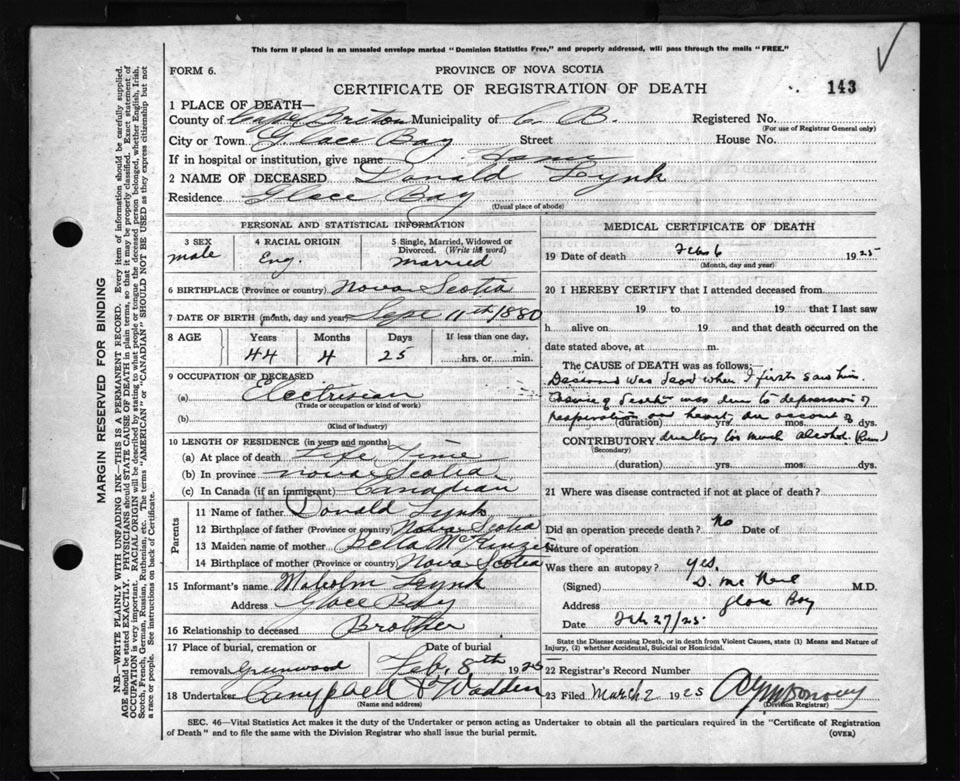 This form if placed in an unsealed envelope marked "Dominion Statistics Free," and properly addressed, will pass through the mails "FREE."
FORM 6.
PROVINCE OF NOVA SCOTIA
CERTIFICATE OF REGISTRATION OF DEATH
143
1 PLACE OF DEATH—
County of Cape Breton Municipality of C. B. Registered No.
(For use of Registrar General only)
City or Town Glace Bay Street House No.
If in hospital or institution, give name Home
2 NAME OF DECEASED Donald Lynk
Residence Glace Bay
(Usual place of abode)
PERSONAL AND STATISTICAL INFORMATION
3 SEX 4 RACIAL ORIGIN 5 Single, Married, Widowed or Divorced. (Write the word)
male Eng. married
6 BIRTHPLACE (Province or country) Nova Scotia
7 DATE OF BIRTH (month, day and year) Sept 11th 1880
8 AGE Years Months Days If less than one day,
44 4 25 hrs. or min.
9 OCCUPATION OF DECEASED
(a) Electrisian
(Trade or occupation or kind of work)
(b)
(Kind of industry)
10 LENGTH OF RESIDENCE (in years and months)
(a) At place of death Life Time
(b) In province Nova Scotia
(c) In Canada (if an immigrant) Canadian
Parents
11 Name of father Donald Lynk
12 Birthplace of father (Province or country) Nova Scotia
13 Maiden name of mother Bella McKinzie
14 Birthplace of mother (Province or country) Nova Scotia
15 Informant's name Malcolm Lynk
Address Glace Bay
16 Relationship to deceased Brother
17 Place of burial, cremation or Date of burial
removal Greenwood Feb. 8th 1925
18 Undertaker Campbell & Wadden
(Name and address)
MEDICAL CERTIFICATE OF DEATH
19 Date of death Feb 6 1925
(Month, day and year)
20 I HEREBY CERTIFY that I attended deceased from
19 to 19 that I last saw
h alive on 19 and that death occurred on the
date stated above, at m.
The CAUSE of DEATH was as follows:
Deceased was dead when I first saw him.
Cause of death was due to depression of
respiration and heart on account of
(duration) yrs. mos. dys.
CONTRIBUTORY drinking too much alcohol (Rum)
(Secondary)
(duration) yrs. mos. dys.
21 Where was disease contracted if not at place of death?
Did an operation precede death? No Date of
Nature of operation
Was there an autopsy? yes.
(Signed) D. McNeil M.D.
Address Glace Bay
Date Feb 27/25
State the Disease causing Death, or in death from Violent Causes, state (1) Means and Nature of
Injury, (2) whether Accidental, Suicidal or Homicidal.
22 Registrar's Record Number
23 Filed March 2 1925
(Division Registrar)
SEC. 46—Vital Statistics Act makes it the duty of the Undertaker or person acting as Undertaker to obtain all the particulars required in the "Certificate of Registration
of Death" and to file the same with the Division Registrar who shall issue the burial permit.
(OVER)
MARGIN RESERVED FOR BINDING
N.B.—WRITE PLAINLY WITH UNFADING INK—THIS IS A PERMANENT RECORD. Every item of information should be carefully supplied.
AGE should be stated EXACTLY. PHYSICIANS should STATE CAUSE OF DEATH in plain terms, so that it may be properly classified. Exact statement of
OCCUPATION is very important. RACIAL ORIGIN will be described by stating to what people or tongue the deceased person belonged, whether English, Irish,
Scotch, French, German, Russian, Ruthenian, etc. The terms "AMERICAN" or "CANADIAN" SHOULD NOT BE USED as they express citizenship but not
a race or people. See instructions on back of Certificate.